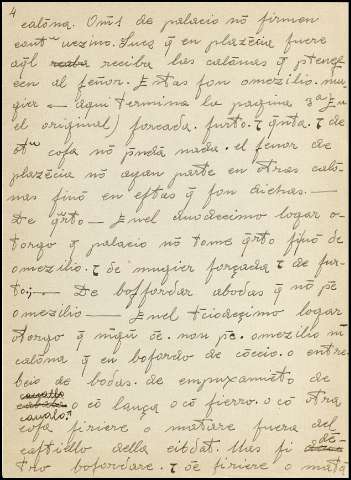 4
calōna. Om̄s de palacio nō firmen
contᵃ uezino. Juez q̄ en plazēcia fuere
aq̄l reciba las calōnas q̄ ptenez-
cen al señor. Estas son omezilio. mu-
gier — aqui termina la pagina 3ª en
el original) forçada. furto. ⁊ q̄nta. ⁊ de
otᵃ cosa nō p̄nda nada. el senor de
plazēcia nō ayan parte en otras calō-
nas sinō en estas q̄ son dichas. —
De q̄rto — Enel duodecimo logar o-
torgo q̄ palacio nō tome q̄rto sinō de
omezilio. ⁊ de mugier forçada ⁊ de fur-
to; — De boffordar abodas q̄ nō pē
omezilio — Enel tciodeçimo logar
otorgo q̄ nīgū oē. non pē. omezilio nī
calōna q̄ en bofordo de cōceio. o entre-
beio de bodas. de empuxamiēto de
cauallo o cō lança o cō fierro. o cō otra
cosa firiere o matare fuera del
castiello della cibdat. Mas si dē-
tro bofordare. ⁊ oē firiere o matā